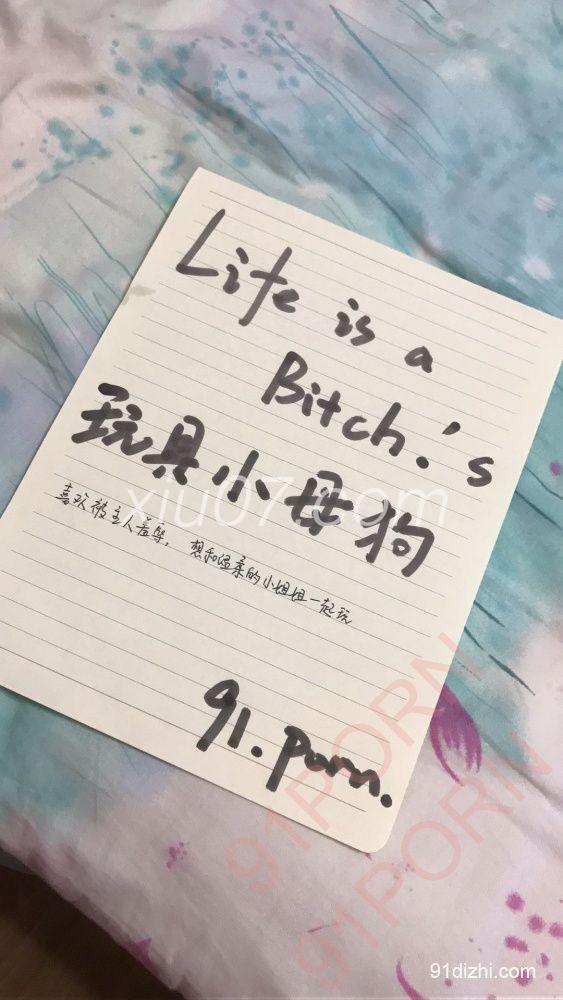 Life is a
Bitch.'s
玩具小母狗
xiu07.com
喜欢被主人羞辱，想和温柔的小姐姐一起玩
91.porn.
91PORN
91PORN
91dizhi.com